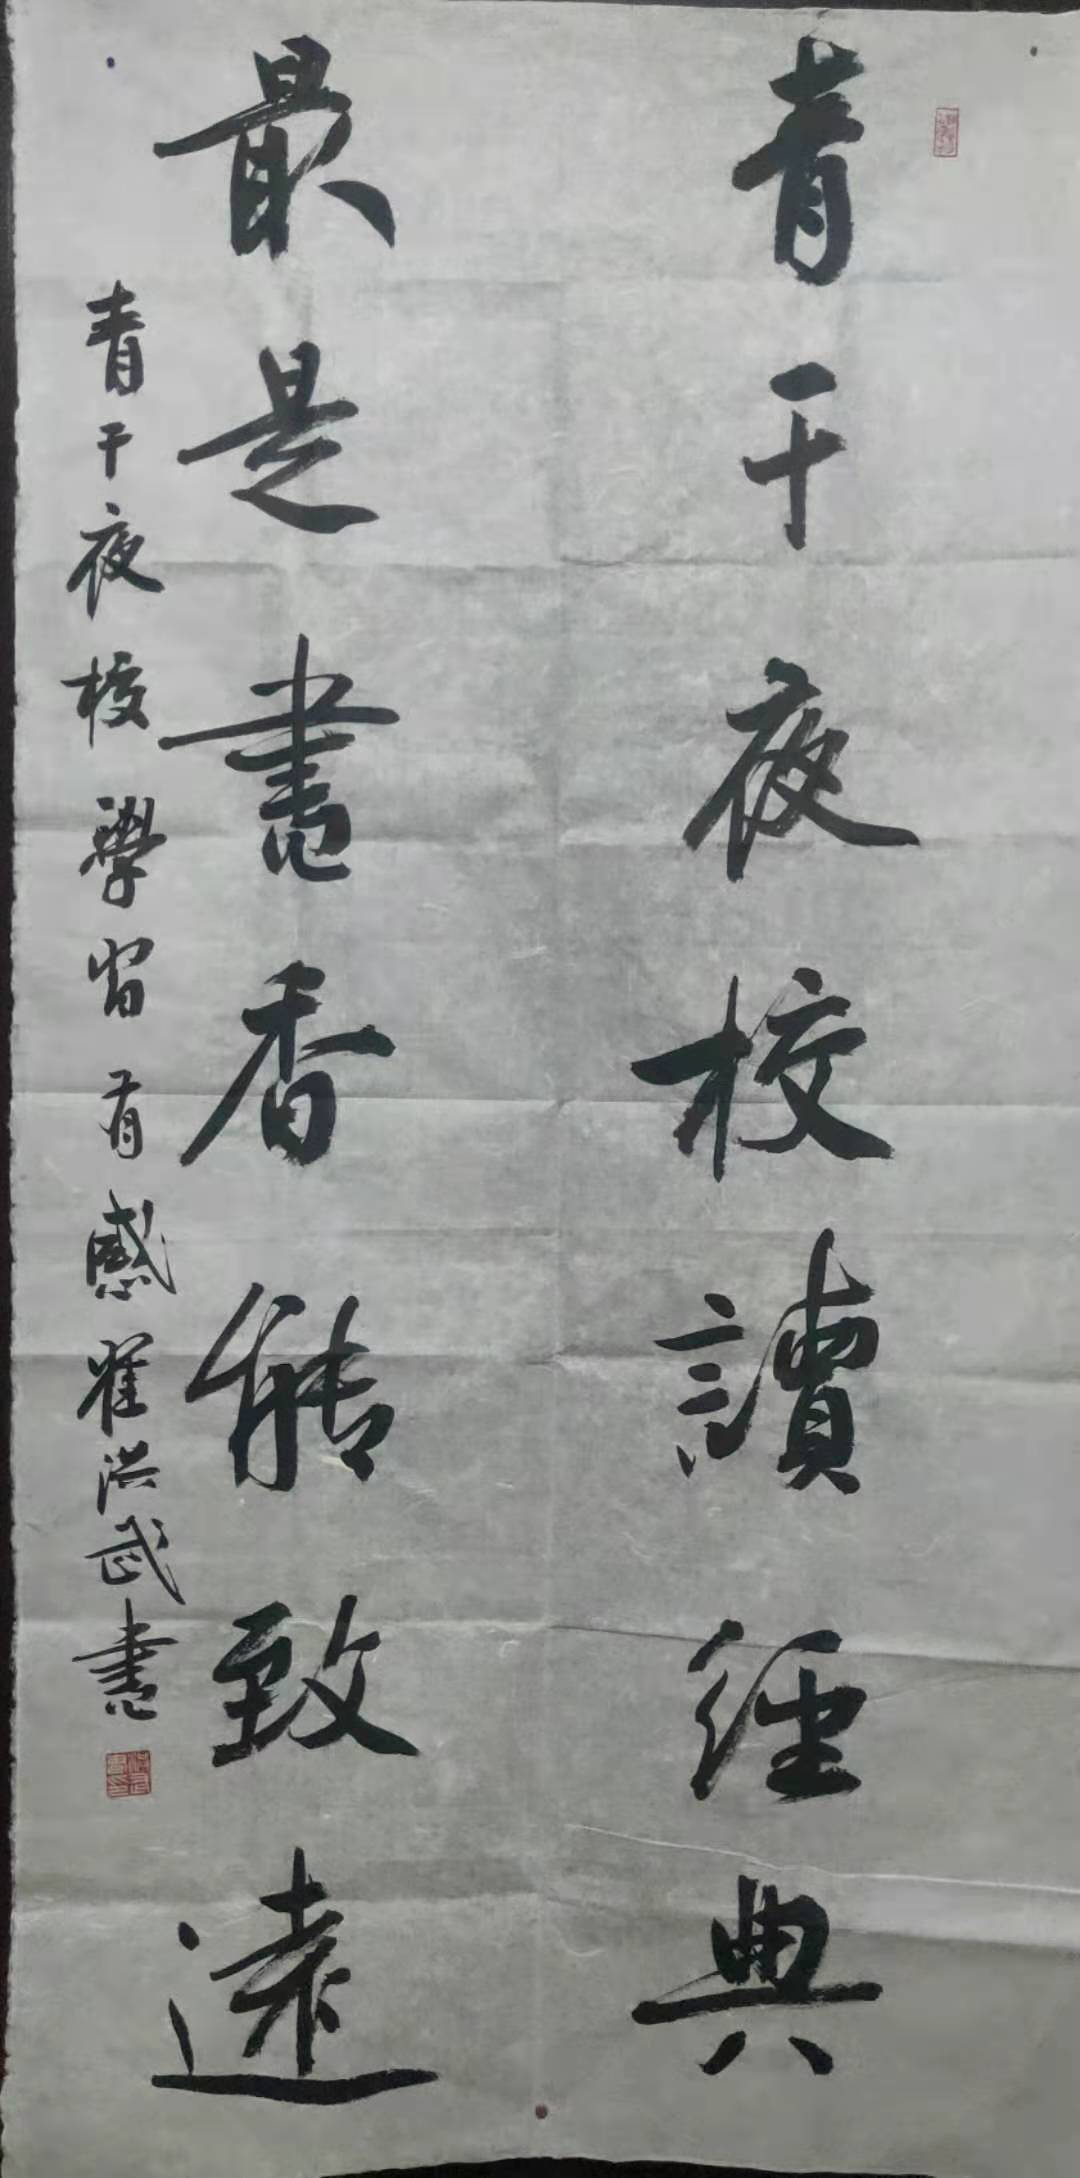 青干夜校讀經典
最是書香能致遠
青干夜校學習有感崔洪武書